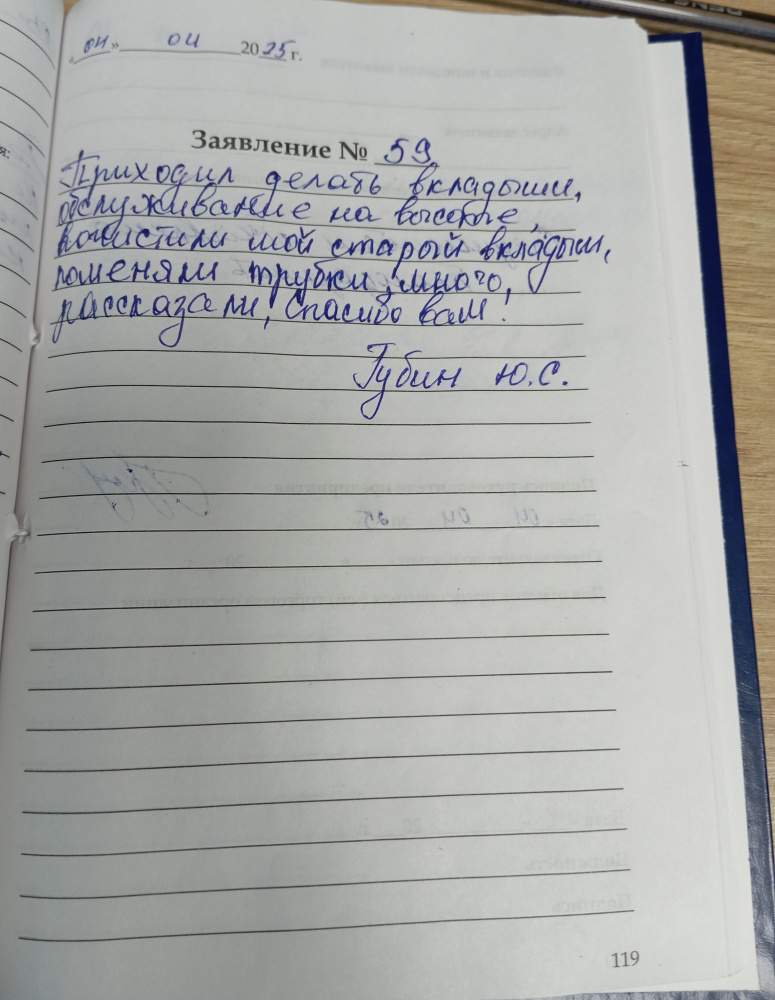 «04» 04 2025 г.
Заявление № 59
Приходил делать вкладыши,
обслуживание на высоте,
почистили мой старый вкладыш,
поменяли трубки, много,
рассказали, спасибо вам!
Губин Ю.С.
119